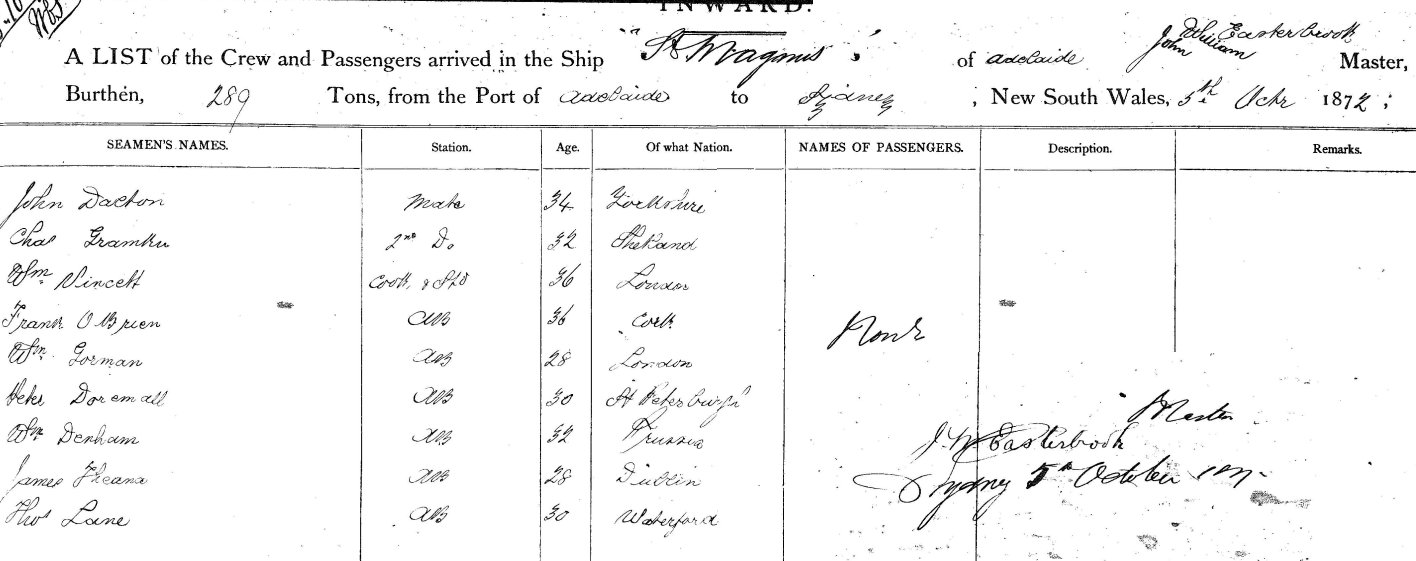 INWARD.
A LIST of the Crew and Passengers arrived in the Ship "St Magnus", of Adelaide John William Easterbrook Master,
Burthen, 289 Tons, from the Port of Adelaide to Sydney, New South Wales, 5th Octr 1872;
SEAMEN'S NAMES. Station. Age. Of what Nation. NAMES OF PASSENGERS. Description. Remarks.
John Dalton Mate 34 Yorkshire
Chas 2nd Do 32
Wm Vincett Cook & Std 36 London
Frank OBrien AB 36 Cork
None
Wm Gorman AB 28 London
Doremall AB 30 St Petersburgh
Master
Wm Denham AB 32 Prussia
J. W Easterbrook
James AB 28 Dublin
Sydney 5th October
Thos Lane AB 30 Waterford